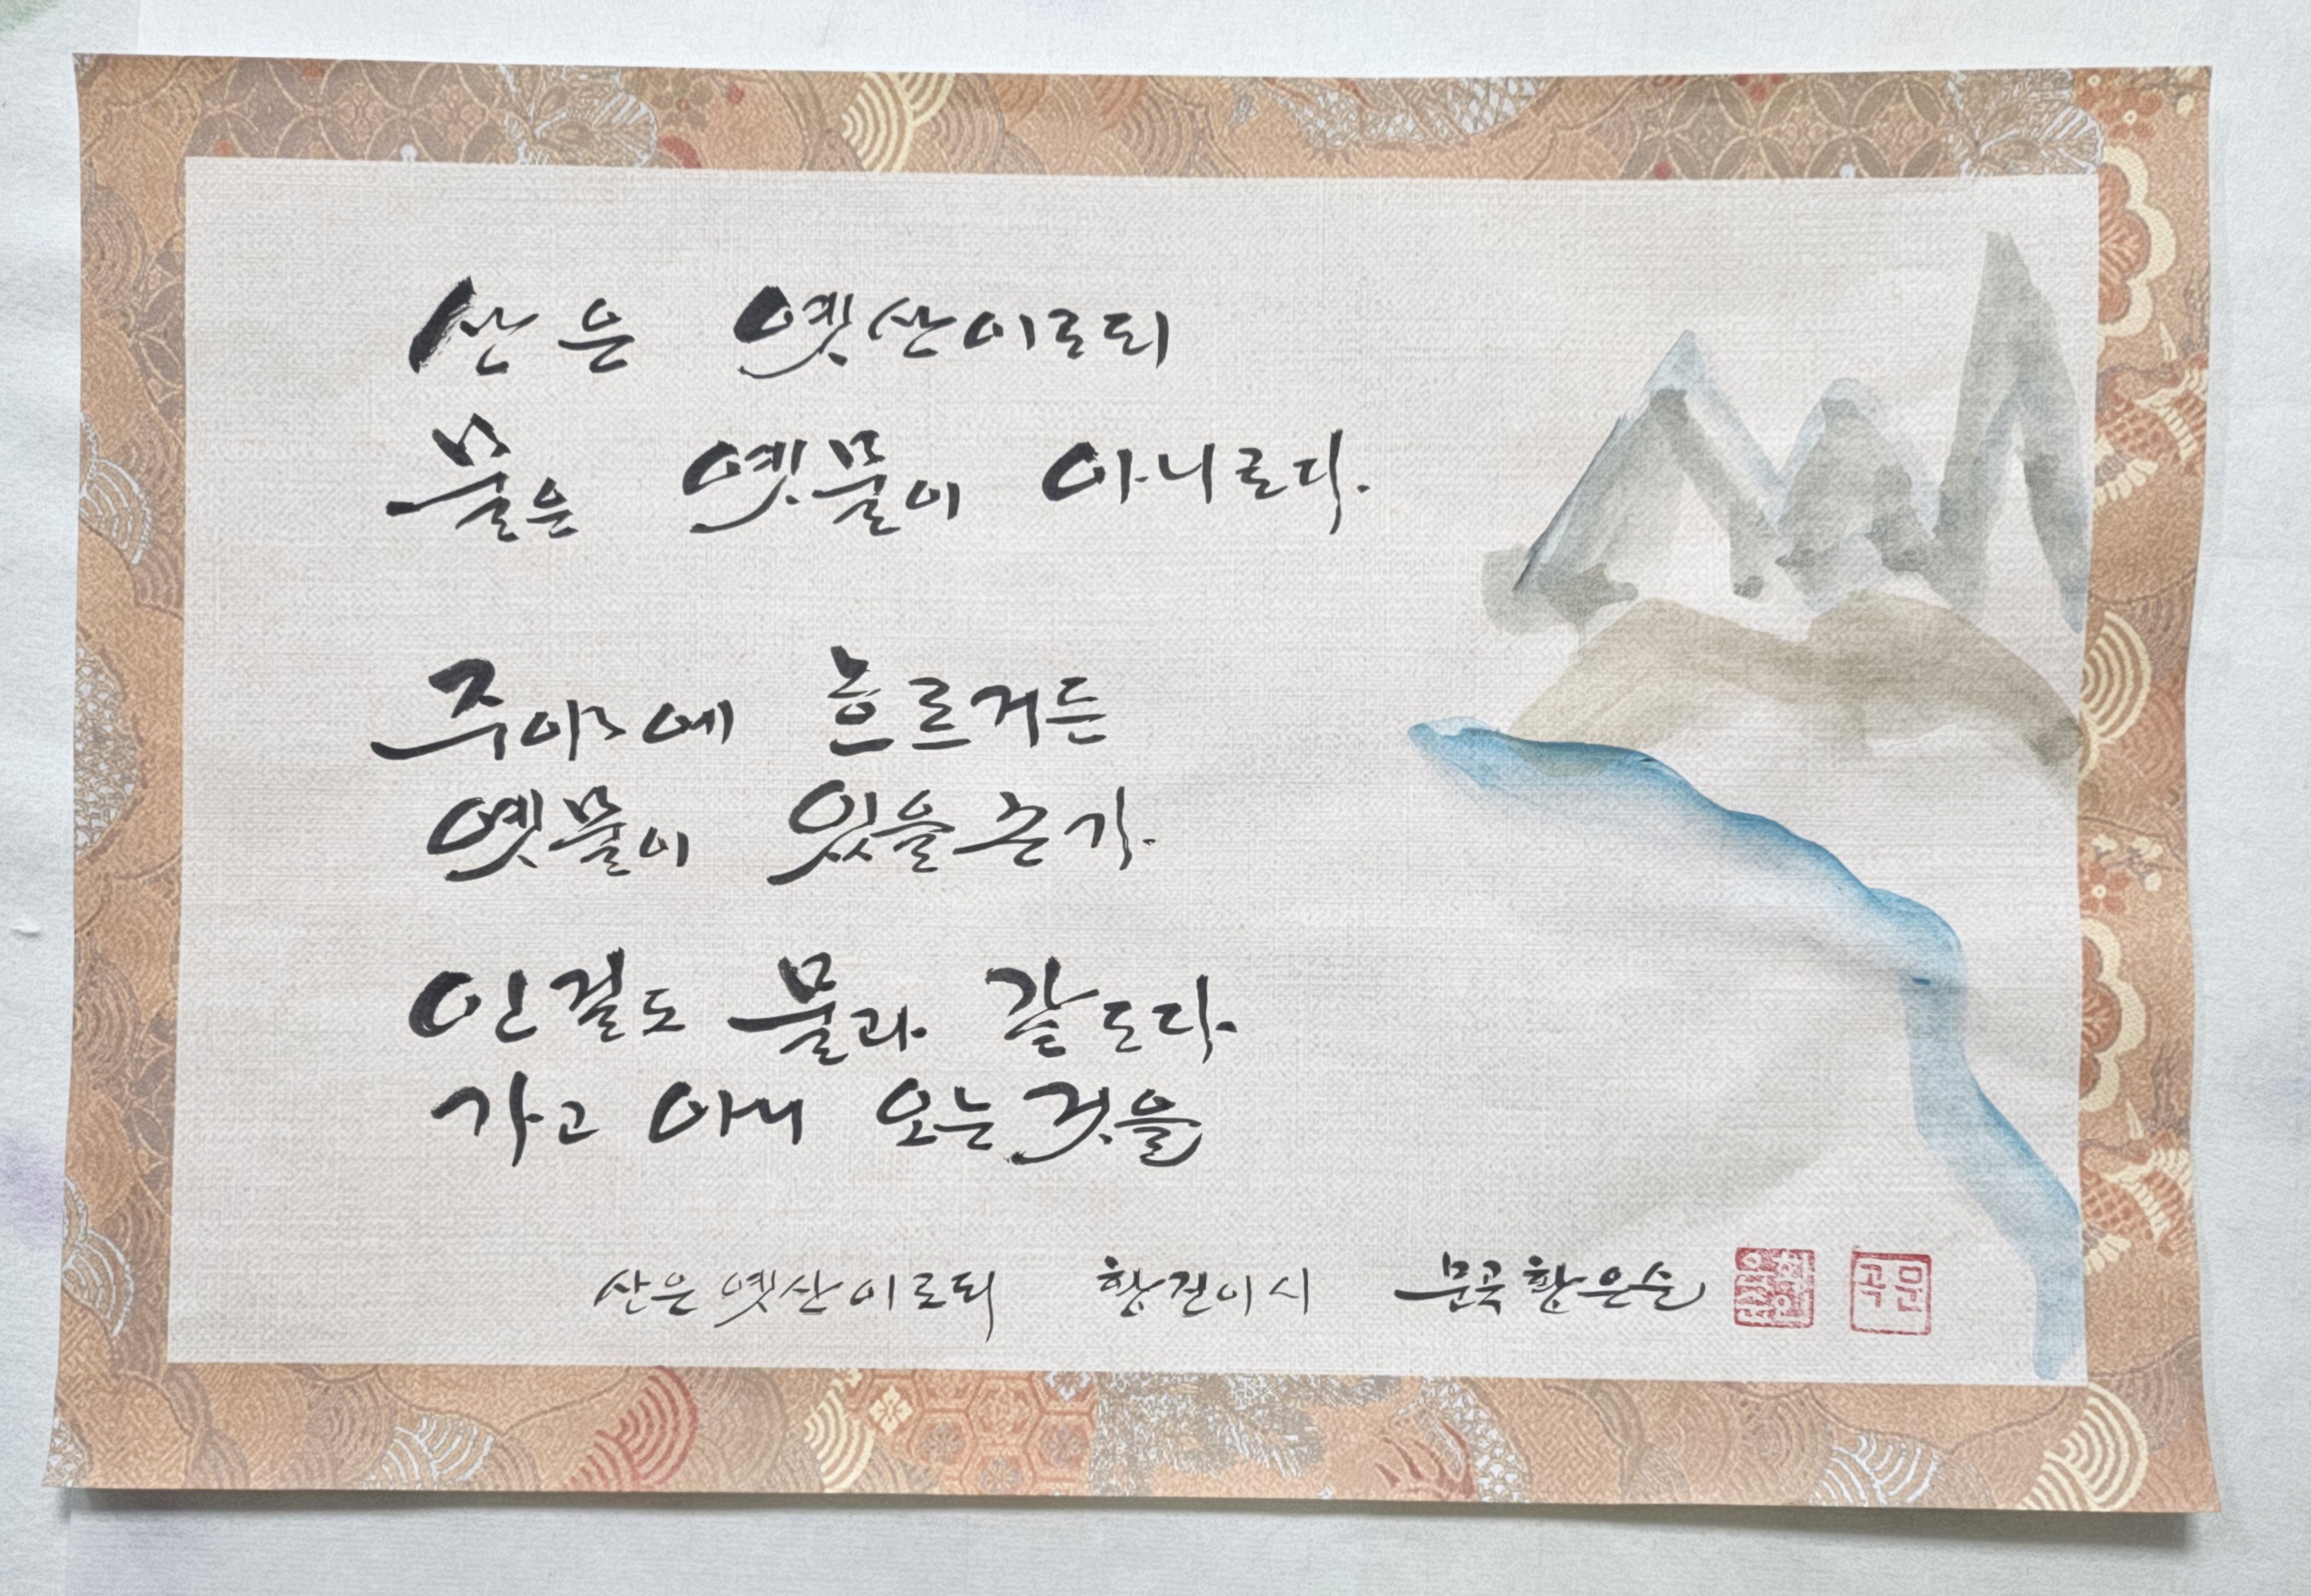 산은 옛산이로되
물은 옛물이 아니로다.
주야에 흐르거든
옛물이 있을손가.
인걸도 물과 같도다
가고 아니 오는것을
산은 옛산이로되 황진이 시 문곡 황은순
문곡